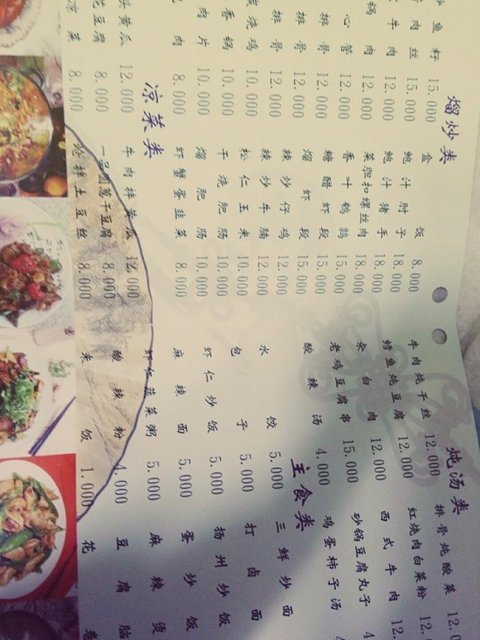 熘炒类
鱼籽 15.000 盒饭 8.000
肉丝 15.000 鲍汁肘子 18.000
牛肉 12.000 鲍汁猪手 18.000
锅肉 12.000 菜胆扣螺丝肉 18.000
心管 12.000 香叶鹌鹑 15.000
排骨 12.000 糖醋虾段 15.000
排骨 12.000 熘虾段 15.000
排骨 12.000 辣炒仔鸡 12.000
烧鸡 10.000 辣炒牛腩 12.000
香锅 10.000 松仁玉米 10.000
肉片 10.000 干烧肥肠 10.000
肉 8.000 熘肥肠 10.000
虾蟹蛋韭菜 8.000
凉菜类
头黄瓜 12.000 牛肉拌黄瓜 12.000
花豆腐 8.000 葱干豆腐 8.000
凉菜 8.000 炝拌土豆丝 8.000
炖汤类
牛肉炖干丝 12.000 排骨炖酸菜 12.
鳕鱼炖豆腐 12.000 红烧肉白菜粉 12.
汆白肉 12.000 西式牛肉 12.
老鸡豆腐串 15.000 砂锅豆腐丸子 4
酸辣汤 4.000 鸡蛋柿子汤 4
主食类
水饺 5.000 三鲜炒面
包子 5.000 打卤面
虾仁炒饭 5.000 扬州炒饭
麻辣面 5.000 蛋炒饭
虾仁蔬菜粥 5.000 麻辣烫
酸辣粉 4.000 豆腐脑
米饭 1.000 花